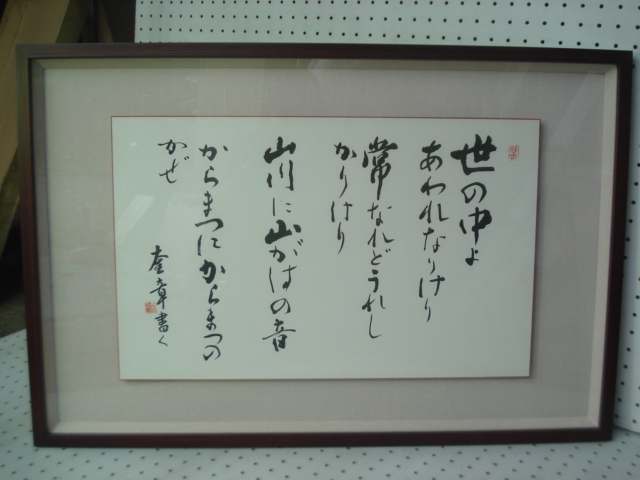 世の中よ
あわれなりけり
常なれどうれし
かりけり
山川に山がはの音
からまつにからまつの
かぜ
奎章書く